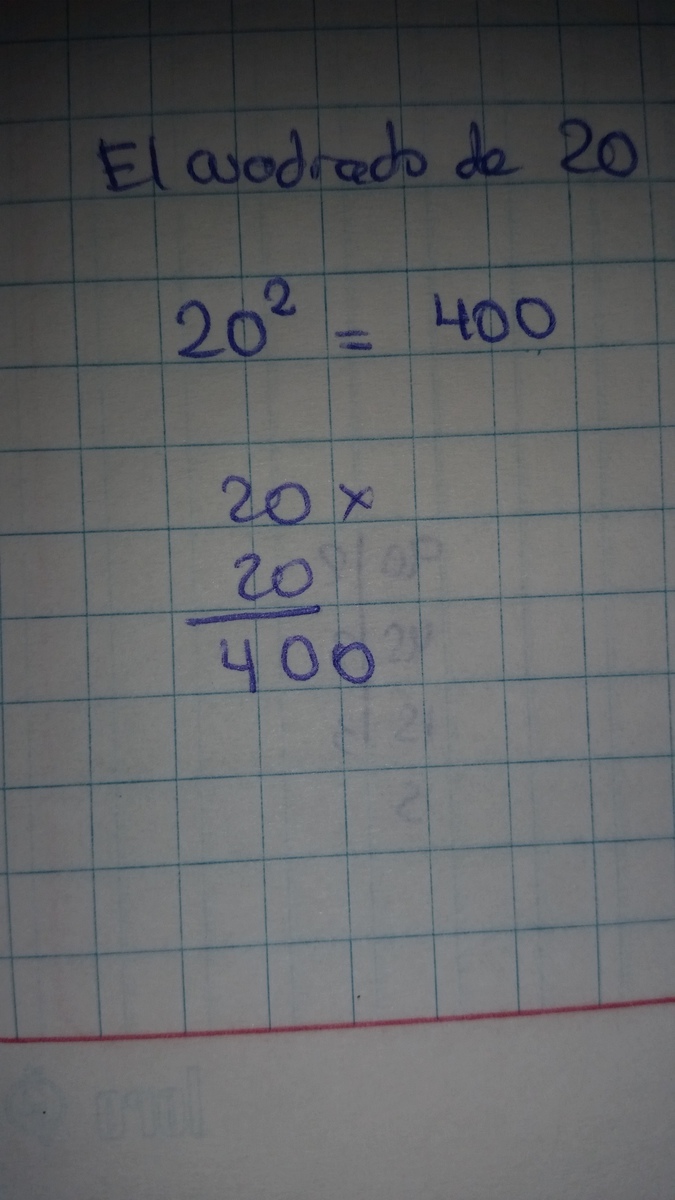 El cuadrado de 20
20² = 400
20 x
20
400